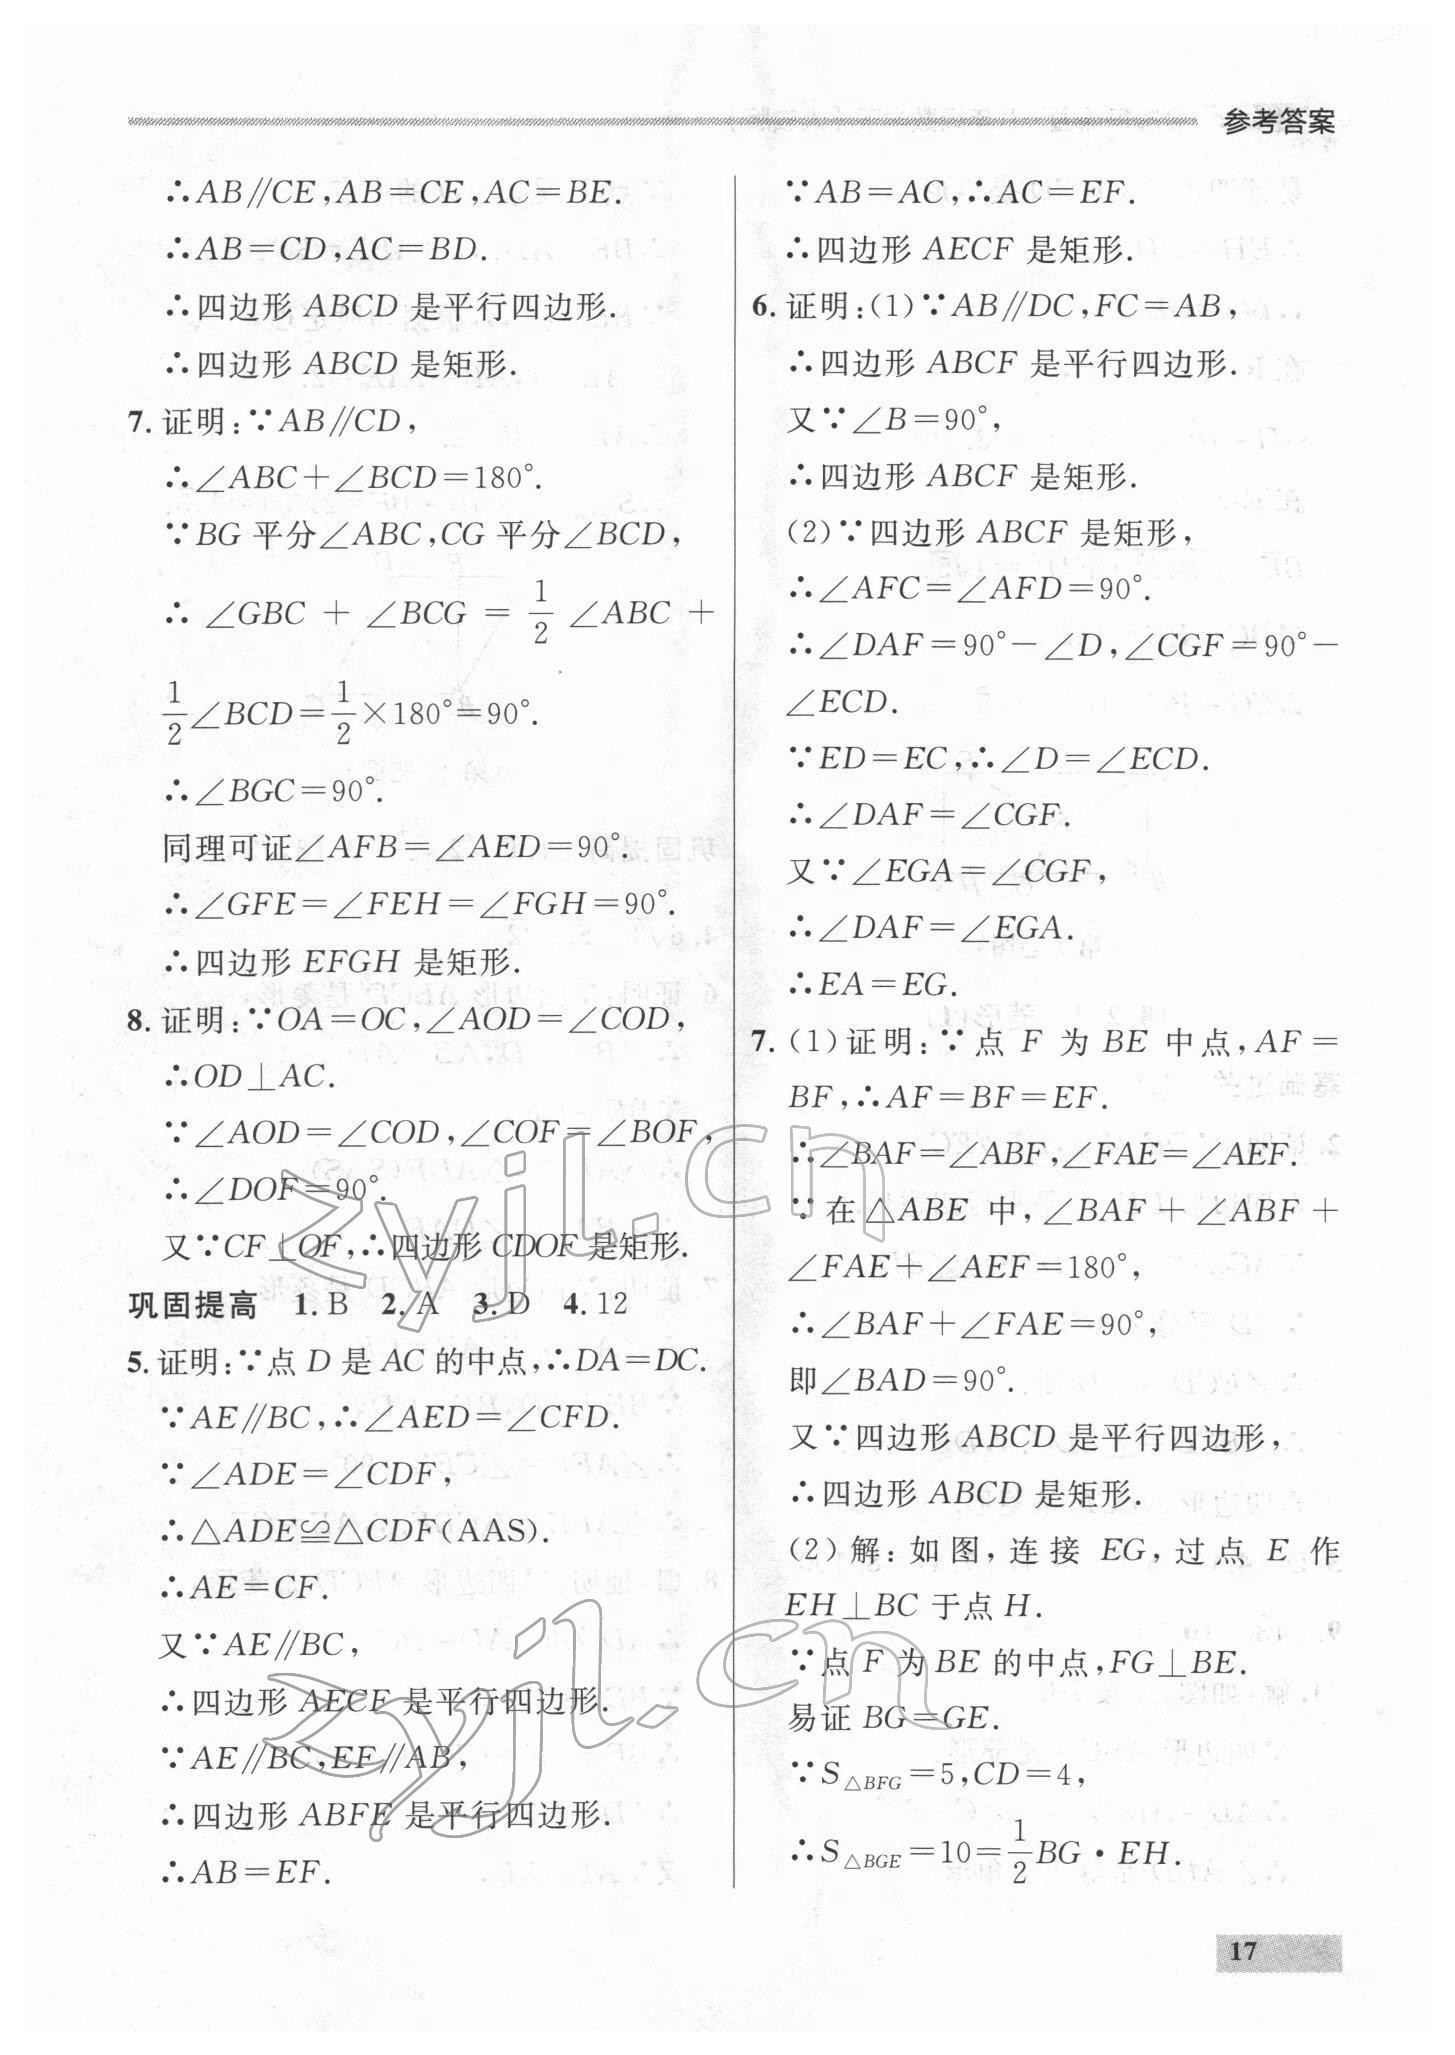 参考答案
∴AB∥CE,AB=CE,AC=BE.
∴AB=CD,AC=BD.
∴四边形 ABCD 是平行四边形.
∴四边形 ABCD 是矩形.
7. 证明:∵AB∥CD,
∴∠ABC+∠BCD=180°.
∵BG 平分∠ABC,CG 平分∠BCD,
∴ ∠GBC + ∠BCG = 1/2 ∠ABC +
1/2∠BCD=1/2×180°=90°.
∴∠BGC=90°.
同理可证∠AFB=∠AED=90°.
∴∠GFE=∠FEH=∠FGH=90°.
∴四边形 EFGH 是矩形.
8. 证明:∵OA=OC,∠AOD=∠COD,
∴OD⊥AC.
∵∠AOD=∠COD,∠COF=∠BOF,
∴∠DOF=90°.
又∵CF⊥OF,∴四边形 CDOF 是矩形.
巩固提高 1. B 2. A 3. D 4. 12
5. 证明:∵点 D 是 AC 的中点,∴DA=DC.
∵AE∥BC,∴∠AED=∠CFD.
∵∠ADE=∠CDF,
∴△ADE≌△CDF(AAS).
∴AE=CF.
又∵AE∥BC,
∴四边形 AECF 是平行四边形.
∵AE∥BC,EF∥AB,
∴四边形 ABFE 是平行四边形.
∴AB=EF.
∵AB=AC,∴AC=EF.
∴四边形 AECF 是矩形.
6. 证明:(1)∵AB∥DC,FC=AB,
∴四边形 ABCF 是平行四边形.
又∵∠B=90°,
∴四边形 ABCF 是矩形.
(2)∵四边形 ABCF 是矩形,
∴∠AFC=∠AFD=90°.
∴∠DAF=90°-∠D,∠CGF=90°-
∠ECD.
∵ED=EC,∴∠D=∠ECD.
∴∠DAF=∠CGF.
又∵∠EGA=∠CGF,
∴∠DAF=∠EGA.
∴EA=EG.
7. (1)证明:∵点 F 为 BE 中点,AF=
BF,∴AF=BF=EF.
∴∠BAF=∠ABF,∠FAE=∠AEF.
∵在△ABE 中,∠BAF+∠ABF+
∠FAE+∠AEF=180°,
∴∠BAF+∠FAE=90°,
即∠BAD=90°.
又∵四边形 ABCD 是平行四边形,
∴四边形 ABCD 是矩形.
(2)解:如图,连接 EG,过点 E 作
EH⊥BC 于点 H.
∵点 F 为 BE 的中点,FG⊥BE.
易证 BG=GE.
∵S△BFG=5,CD=4,
∴S△BGE=10=1/2BG·EH.
17
zyjl.cn
zyjl.cn